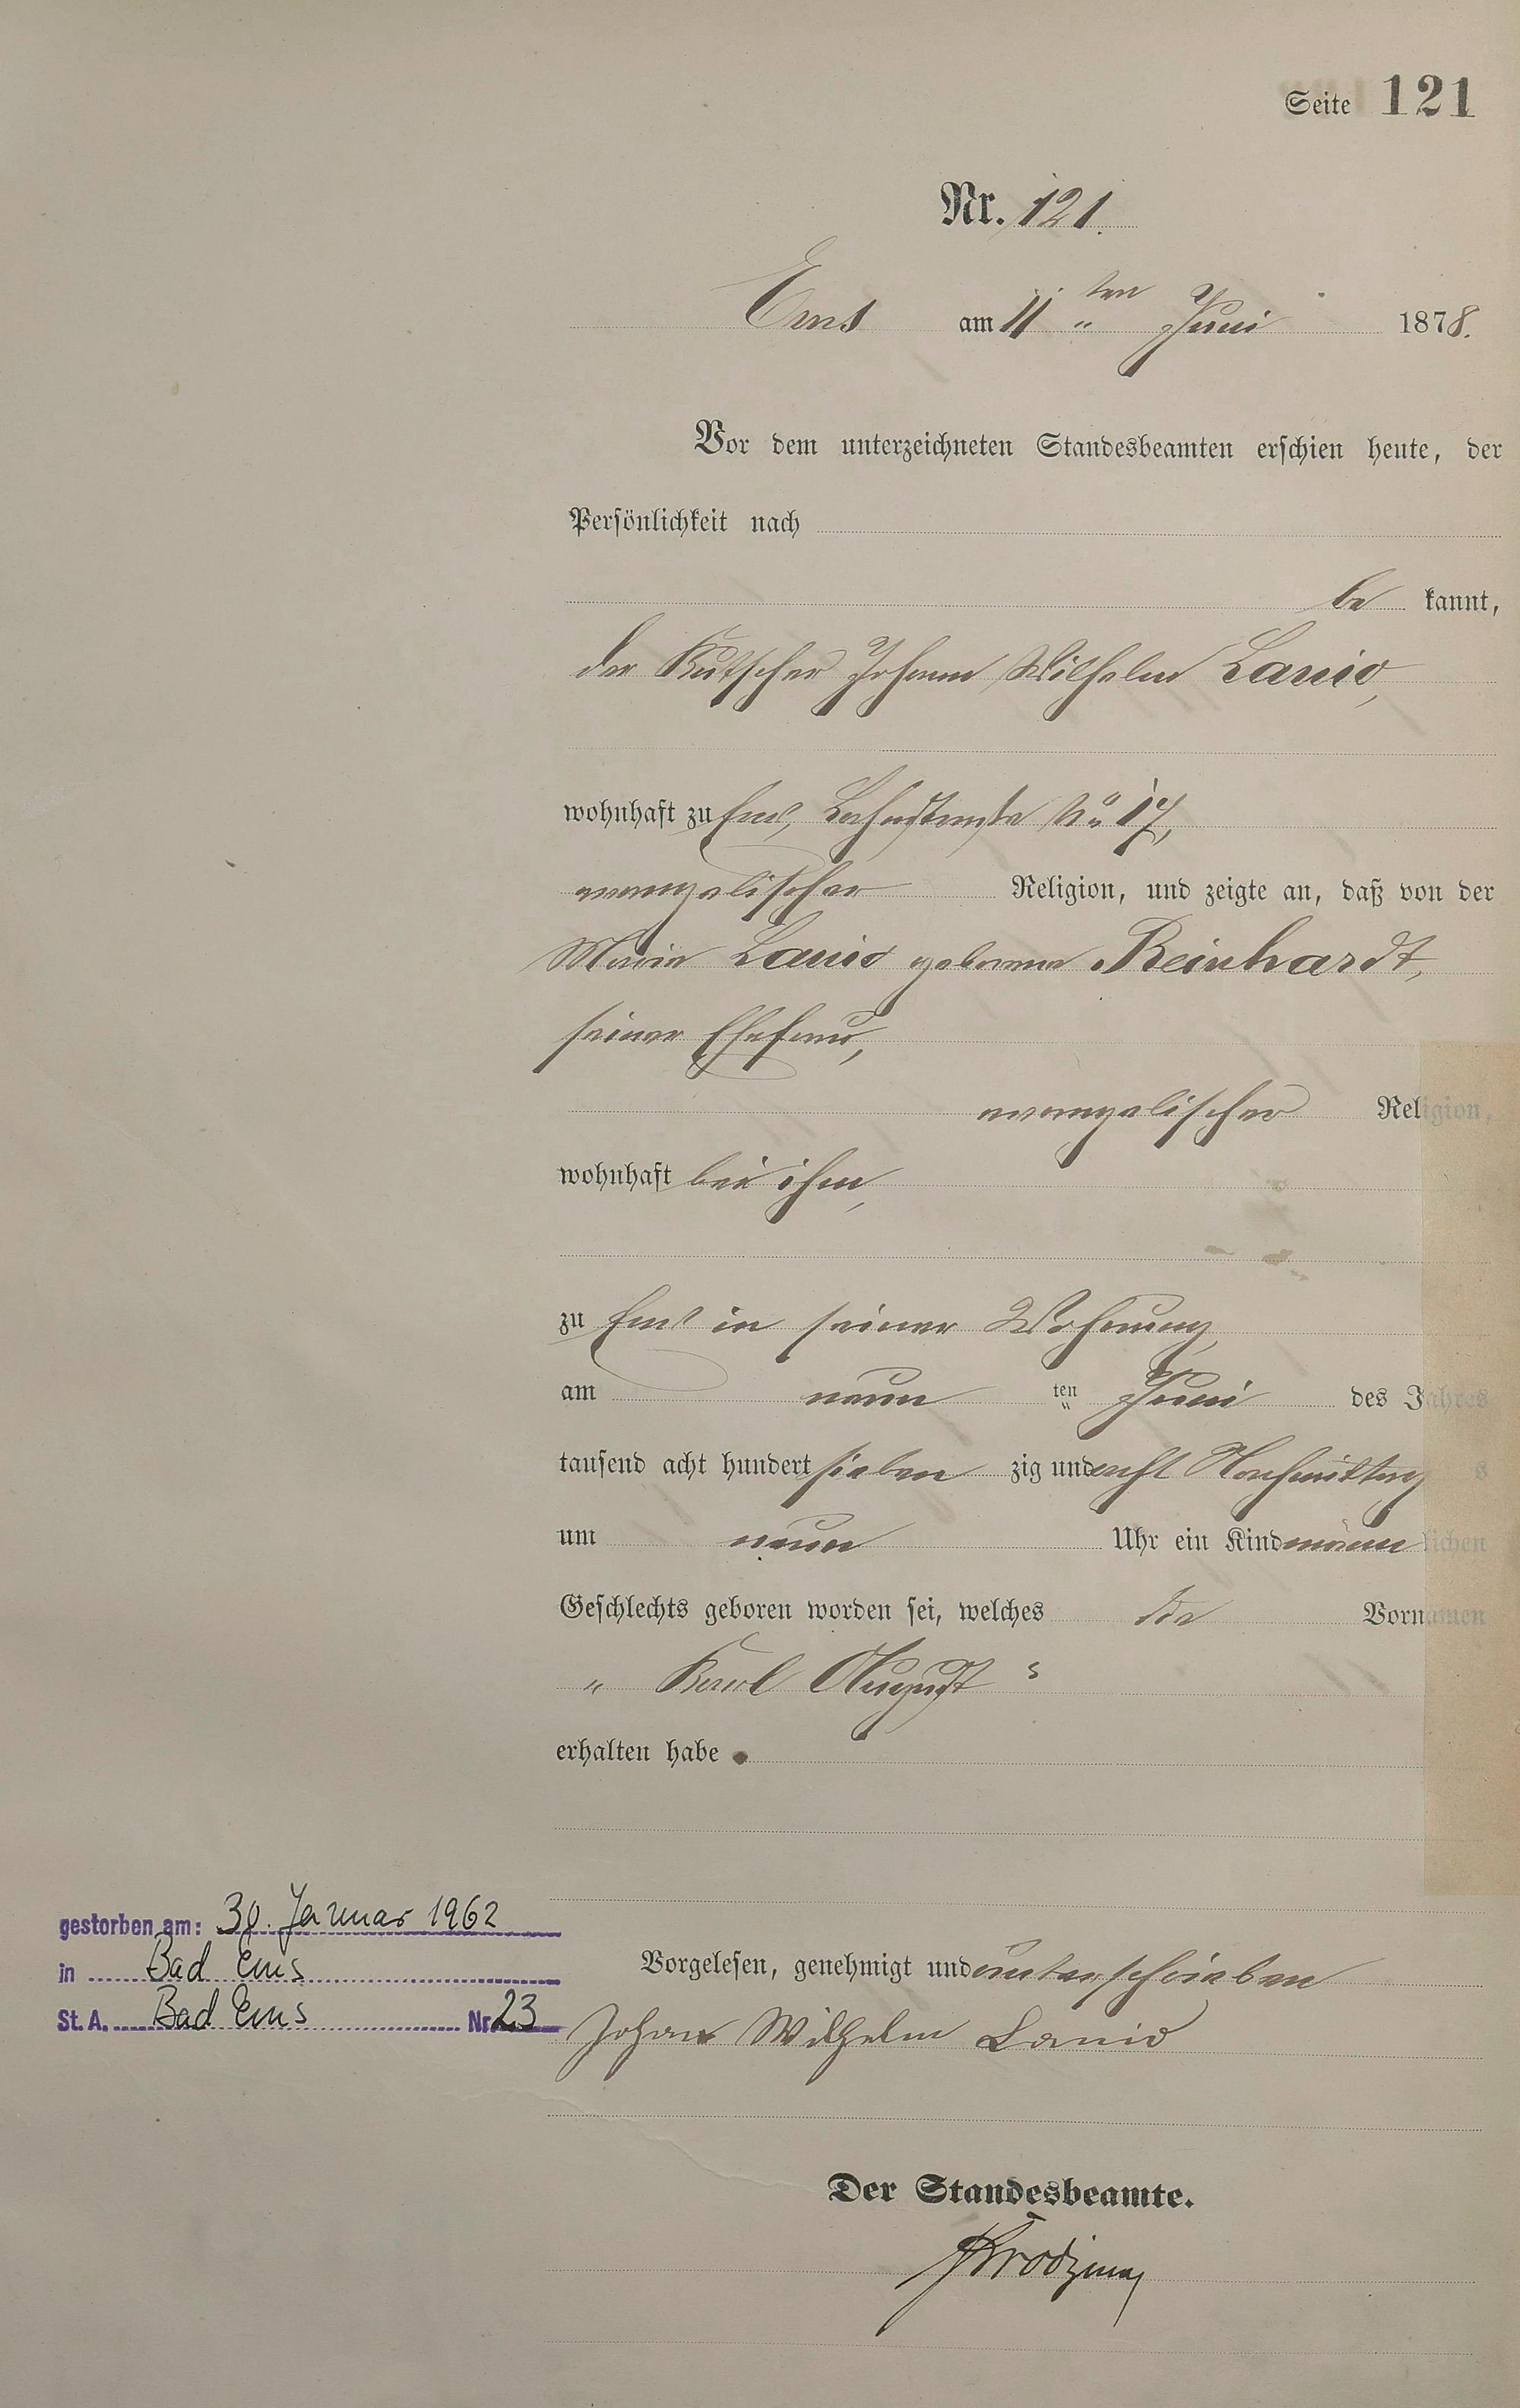 Seite 121
Nr. 121.
Ems am 11 ten Juni 1878.
Vor dem unterzeichneten Standesbeamten erschien heute, der
Persönlichkeit nach
be kannt,
der Kutscher Johann Wilhelm Lanio,
wohnhaft zu Ems, Lahnstraße No 17,
evangelischer Religion, und zeigte an, daß von der
Maria Lanio geborene Reinhardt,
seiner Ehefrau,
evangelischer Religion,
wohnhaft bei ihm,
zu Ems in seiner Wohnung,
am neun ten Juni des Jahres
tausend acht hundert sieben zig und acht Nachmittag s
um neun Uhr ein Kind männ lichen
Geschlechts geboren worden sei, welches die Vornamen
" Karl August "
erhalten habe.
gestorben am: 30. Januar 1962
in Bad Ems
St. A. Bad Ems Nr 23
Vorgelesen, genehmigt und unterschrieben
Johann Wilhelm Lanio
Der Standesbeamte.